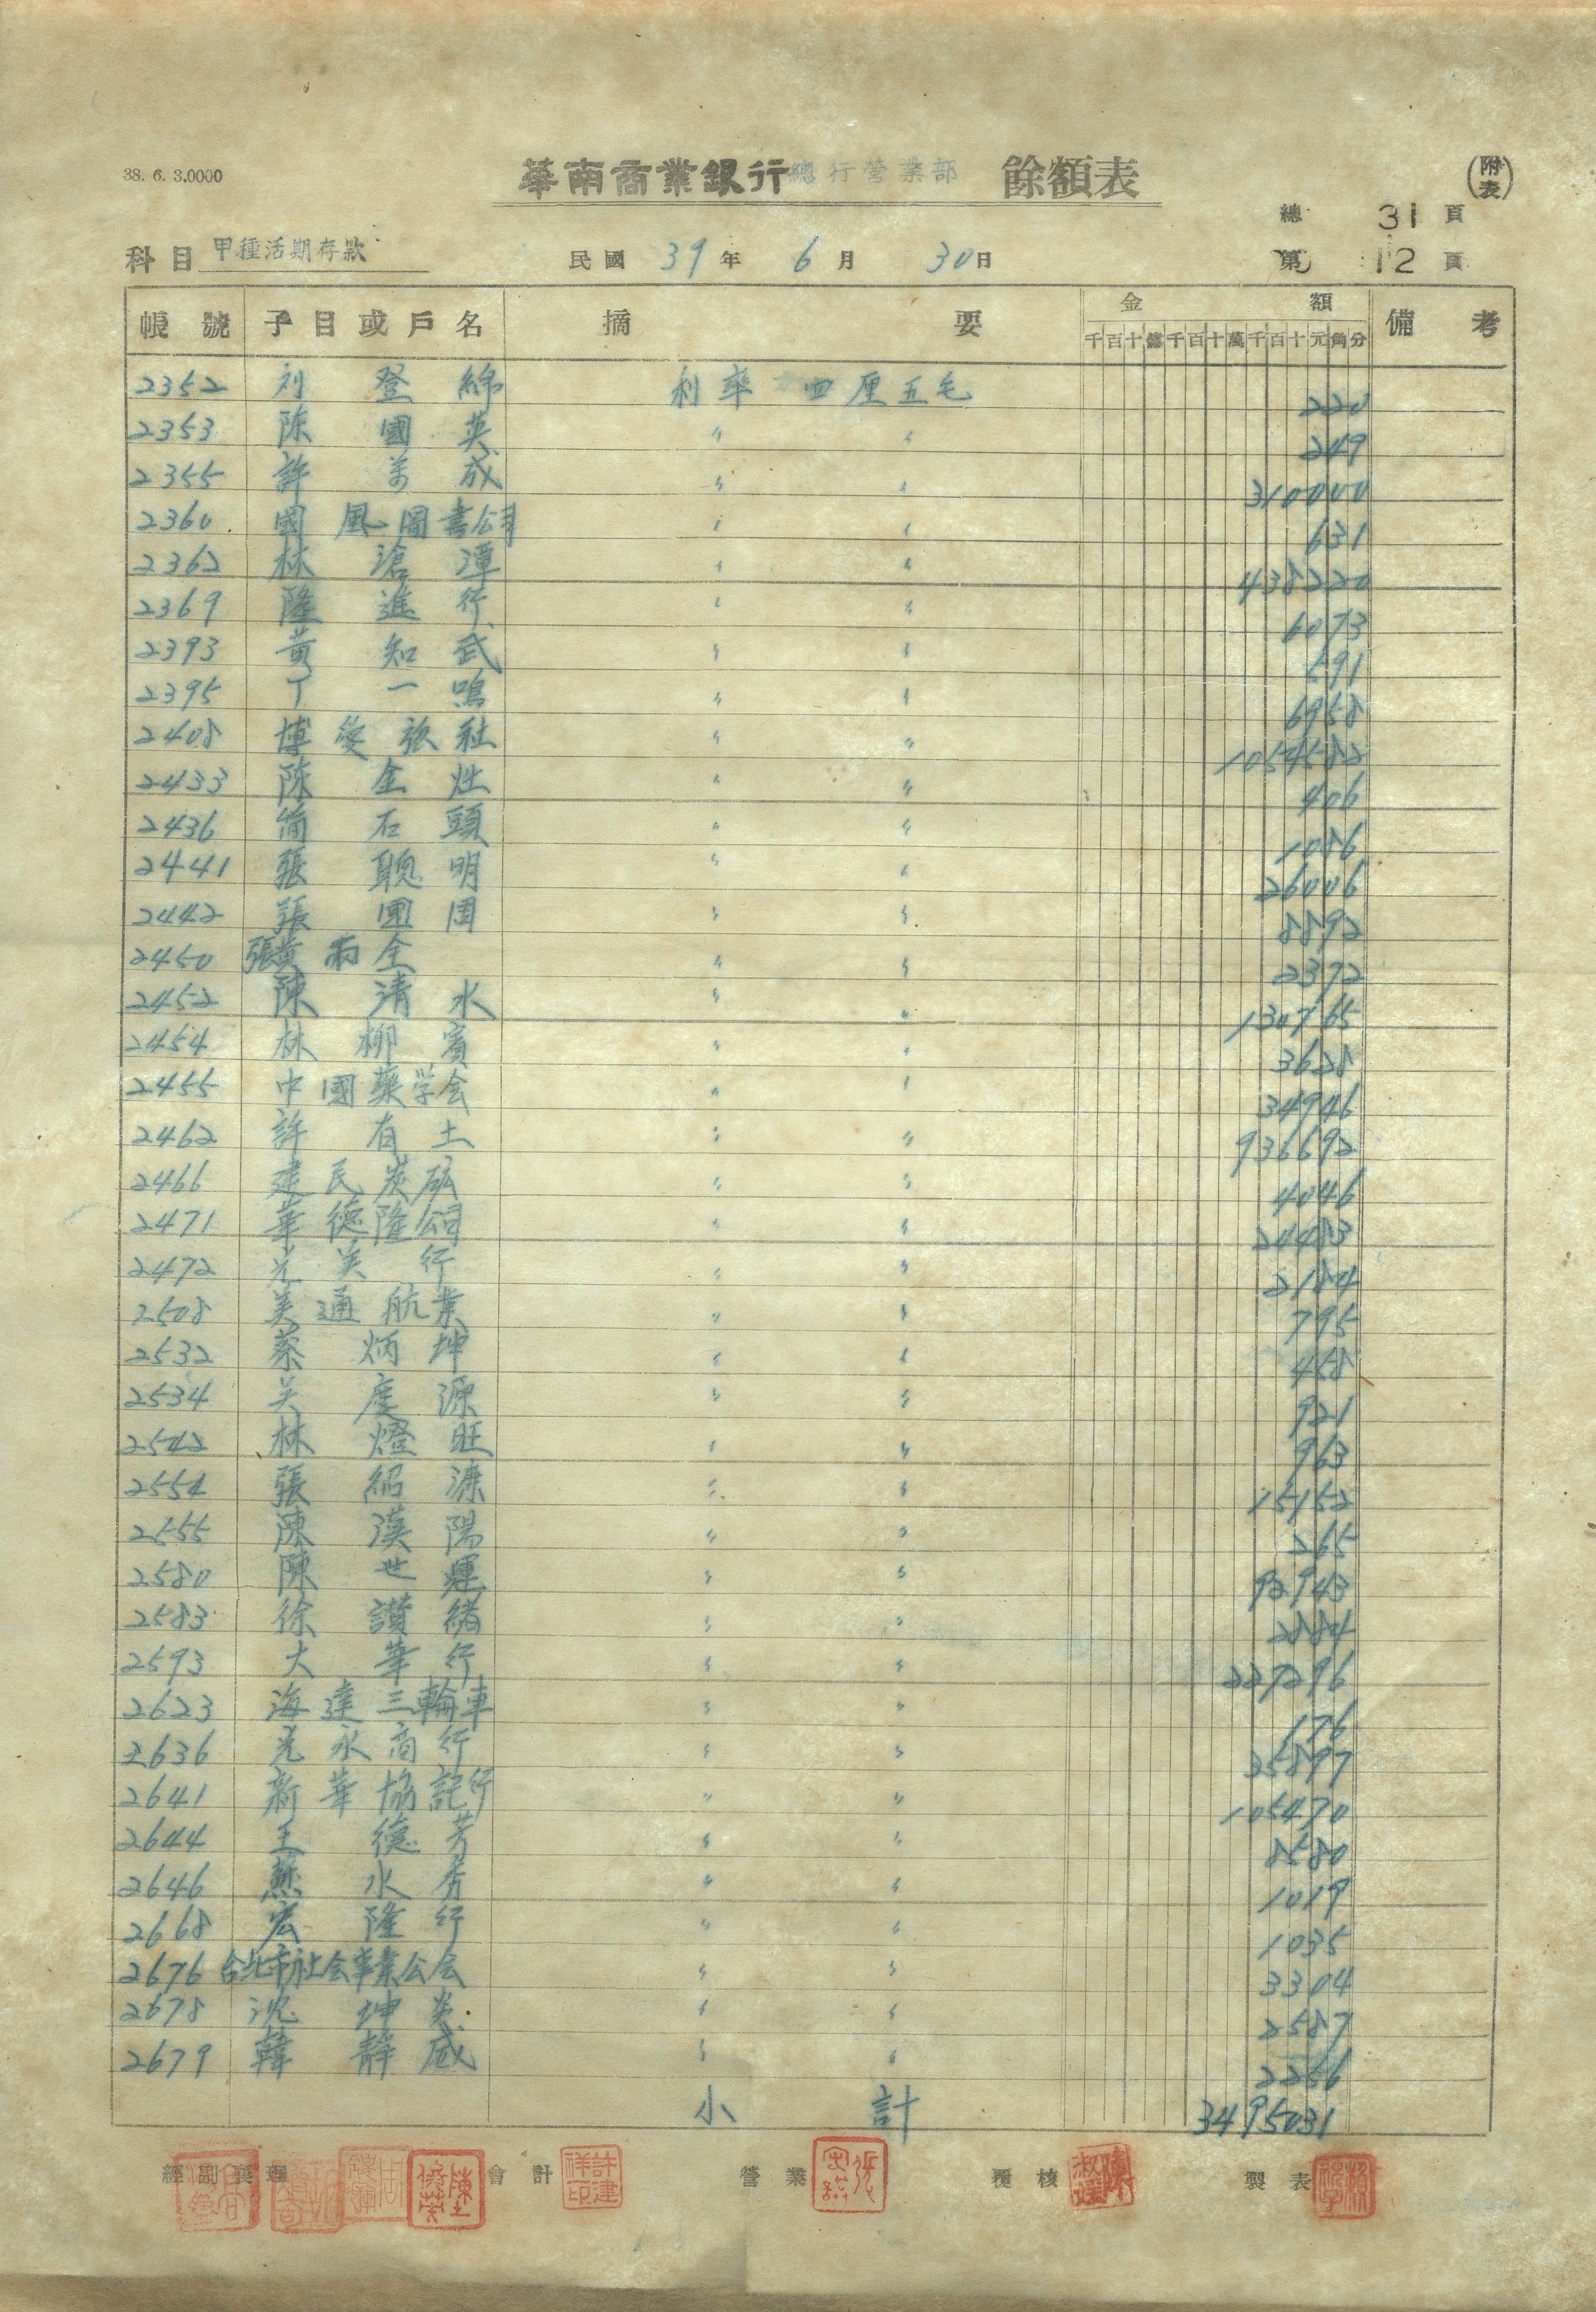 38. 6. 3.0000
華南商業銀行總行營業部 餘額表
(附表)
總 31 頁
科目 甲種活期存款 民國 39 年 6 月 30 日 第 12 頁
帳號 子目或戶名 摘要 金額 備考
千百十億千百十萬千百十元角分
2352 刘登綿 利率 四厘五毛 220
2353 陳國英 〃 〃 249
2355 許万成 〃 〃 310000
2360 國風圖書公司 〃 〃 631
2362 林滄潭 〃 〃 438220
2369 隆進行 〃 〃 6073
2393 黃知武 〃 〃 591
2395 丁一鳴 〃 〃 6958
2408 博愛 社 〃 〃 1054582
2433 陳金灶 〃 〃 406
2436 簡石頭 〃 〃 1086
2441 張聰明 〃 〃 26006
2442 張 〃 〃 8892
2450 張黃兩全 〃 〃 2372
2452 陳清水 〃 〃 130765
2454 林柳賓 〃 〃 3628
2455 中國藥学会 〃 〃 34946
2462 許有土 〃 〃 936692
2466 建民炭砿 〃 〃 4046
2471 華德隆公司 〃 〃 24483
2472 光美行 〃 〃 2184
2508 美通航業 〃 〃 795
2532 蔡炳坤 〃 〃 458
2534 吴度源 〃 〃 921
2542 林燈旺 〃 〃 963
2554 張紹濂 〃 〃 15152
2555 陳漢陽 〃 〃 265
2580 陳世運 〃 〃 92943
2583 徐讃緒 〃 〃 2884
2593 大華行 〃 〃 227296
2623 海達三輪車 〃 〃 176
2636 光永商行 〃 〃 25897
2641 新華協記行 〃 〃 105470
2644 王德芳 〃 〃 8580
2646 燕水秀 〃 〃 1019
2668 宏隆行 〃 〃 1035
2676 台北市社会事業公会 〃 〃 3304
2678 沈坤炎 〃 〃 2587
2679 韓靜威 〃 〃 2256
小計 3495031
經副襄理 會計 許建祥印 營業 覆核 陳 製表